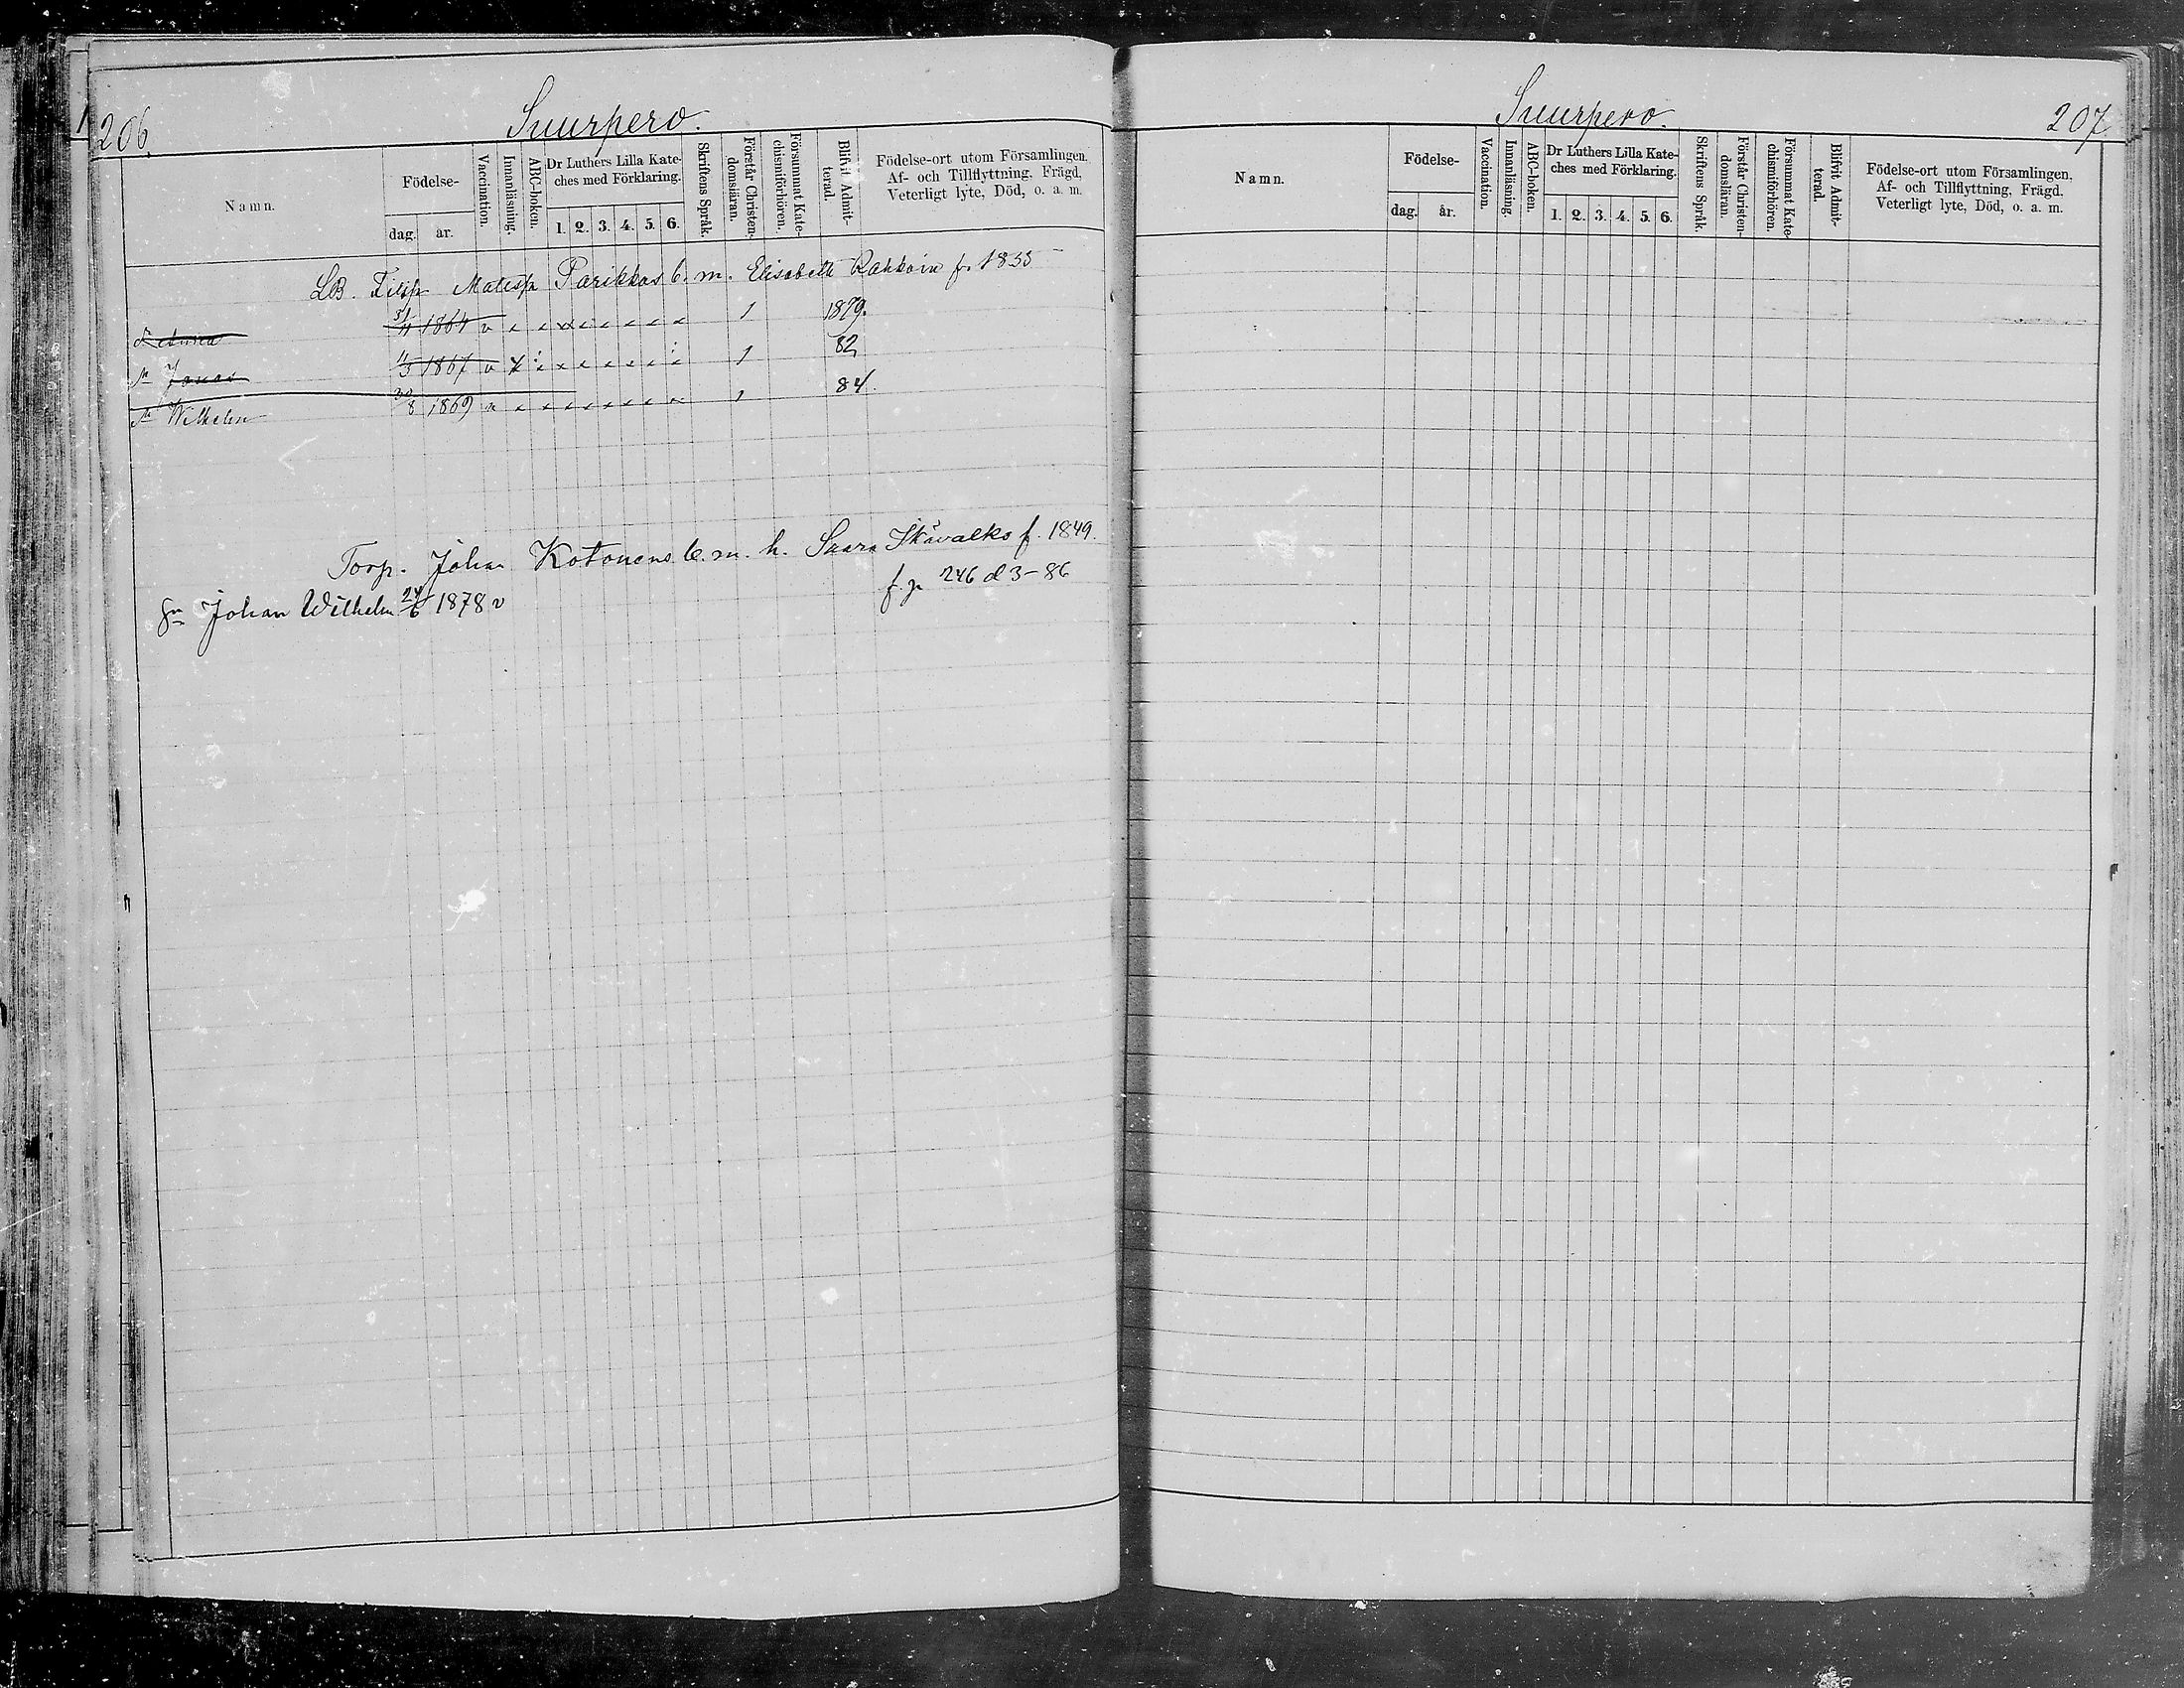 206.
Suurpero.
Namn.
Födelse-
dag.
år.
Vaccination.
Innanläsning.
ABC-boken.
Dr Luthers Lilla Kate-
ches med Förklaring.
1. 2. 3. 4. 5. 6.
Skriftens Språk.
Förstår Christen-
domsläran.
Försummat Kate-
chismiförhören.
Blifvit Admit-
terad.
Födelse-ort utom Församlingen.
Af- och Tillflyttning, Frägd,
Veterligt lyte, Död, o. a. m.
LB. Filip Matesp Parikkas b. m. Elisabeth f. 1855
1864 v 1 1879.
Jonas 11/5 1867 v 1 82
Wilhelm 30/8 1869 1 84.
Torp. Johan Kotonens b. m. h. Saara Ikävalko f. 1849.
Johan Wilhelm 24/6 1878 v f. p 246 d 3-86
Suurpero.
207
Namn.
Födelse-
dag.
år.
Vaccination.
Innanläsning.
ABC-boken.
Dr Luthers Lilla Kate-
ches med Förklaring.
1. 2. 3. 4. 5. 6.
Skriftens Språk.
Förstår Christen-
domsläran.
Försummat Kate-
chismiförhören.
Blifvit Admit-
terad.
Födelse-ort utom Församlingen.
Af- och Tillflyttning, Frägd.
Veterligt lyte, Död, o. a. m.